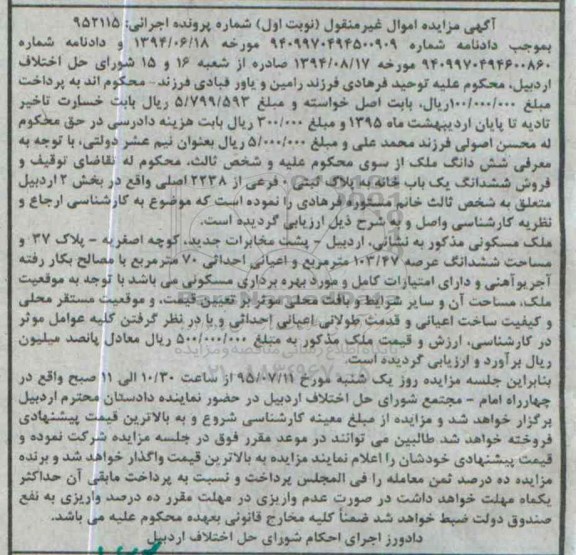 آگهی مزایده اموال غیرمنقول (نوبت اول) شماره پرونده اجرائی: ۹۵۲۱۱۵
بموجب دادنامه شماره ۹۴۰۹۹۷۰۴۹۴۵۰۰۹۰۹ مورخه ۱۳۹۴/۰۶/۱۸ و دادنامه شماره
۹۴۰۹۹۷۰۴۹۴۶۰۰۸۶۰ مورخه ۱۳۹۴/۰۸/۱۷ صادره از شعبه ۱۶ و ۱۵ شورای حل اختلاف
اردبیل، محکوم علیه توحید فرهادی فرزند رامین و یاور قبادی فرزند - محکوم اند به پرداخت
مبلغ ۱۰۰/۰۰۰/۰۰۰ریال، بابت اصل خواسته و مبلغ ۵/۷۹۹/۵۹۳ ریال بابت خسارت تاخیر
تادیه تا پایان اردیبهشت ماه ۱۳۹۵ و مبلغ ۳۰۰/۰۰۰ ریال بابت هزینه دادرسی در حق محکوم
له محسن اصولی فرزند محمد علی و مبلغ ۵/۰۰۰/۰۰۰ ریال بعنوان نیم عشر دولتی، با توجه به
معرفی شش دانگ ملک از سوی محکوم علیه و شخص ثالث، محکوم له تقاضای توقیف و
فروش ششدانگ یک باب خانه به پلاک ثبتی ۰ فرعی از ۲۲۳۸ اصلی واقع در بخش ۲ اردبیل
متعلق به شخص ثالث خانم منصوره فرهادی را نموده است که موضوع به کارشناسی ارجاع و
نظریه کارشناسی واصل و به شرح ذیل ارزیابی گردیده است.
ملک مسکونی مذکور به نشانی، اردبیل - پشت مخابرات جدید، کوچه اصغریه - پلاک ۳۷ و
مساحت ششدانگ عرصه ۱۰۳/۴۷ مترمربع و اعیانی احداثی ۷۰ مترمربع با مصالح بکار رفته
آجروآهنی و دارای امتیازات کامل و مورد بهره برداری مسکونی می باشد با توجه به موقعیت
ملک، مساحت آن و سایر شرایط و بافت محلی موثر بر تعیین قیمت، و موقعیت مستقر محلی
و کیفیت ساخت اعیانی و قدمت طولانی اعیانی احداثی و با در نظر گرفتن کلیه عوامل موثر
در کارشناسی، ارزش و قیمت ملک مذکور به مبلغ ۵۰۰/۰۰۰/۰۰۰ ریال معادل پانصد میلیون
ریال برآورد و ارزیابی گردیده است.
بنابراین جلسه مزایده روز یک شنبه مورخ ۹۵/۰۷/۱۱ از ساعت ۱۰/۳۰ الی ۱۱ صبح واقع در
چهارراه امام - مجتمع شورای حل اختلاف اردبیل در حضور نماینده دادستان محترم اردبیل
برگزار خواهد شد و مزایده از مبلغ معینه کارشناسی شروع و به بالاترین قیمت پیشنهادی
فروخته خواهد شد طالبین می توانند در موعد مقرر فوق در جلسه مزایده شرکت نموده و
قیمت پیشنهادی خودشان را اعلام نمایند مزایده به بالاترین قیمت واگذار خواهد شد و برنده
مزایده ده درصد ثمن معامله را فی المجلس پرداخت و نسبت به پرداخت مابقی آن حداکثر
یکماه مهلت خواهد داشت در صورت عدم واریزی در مهلت مقرر ده درصد واریزی به نفع
صندوق دولت ضبط خواهد شد ضمناً کلیه مخارج قانونی بعهده محکوم علیه می باشد.
دادورز اجرای احکام شورای حل اختلاف اردبیل